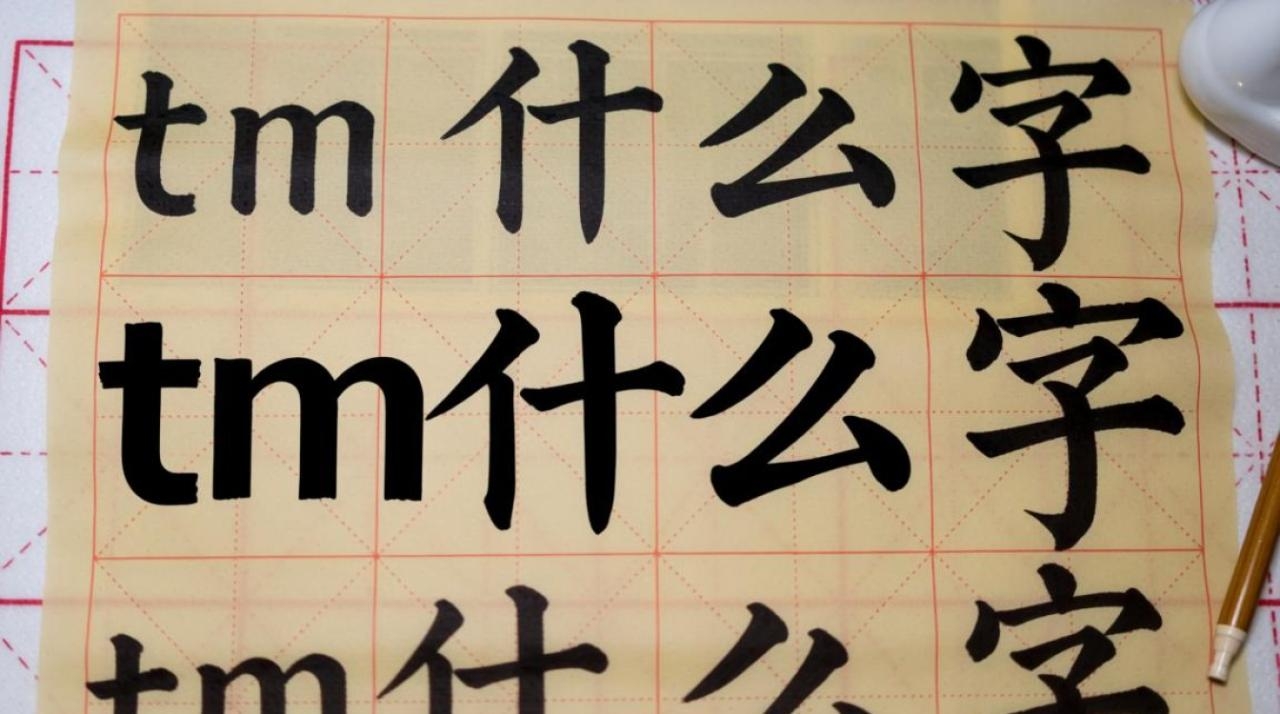 tm什么字
tm什么字
tm什么字